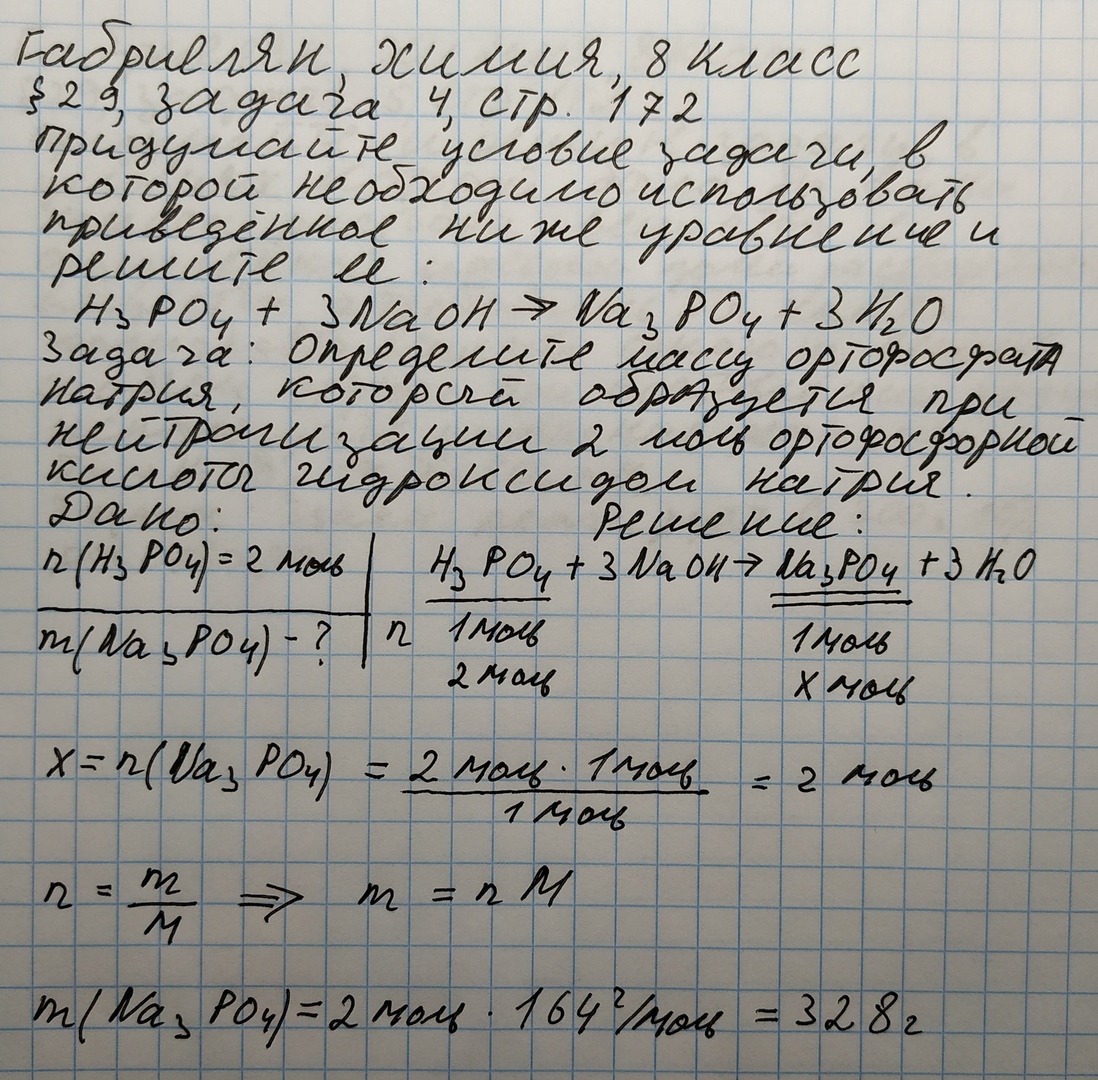 Габриелян, химия, 8 класс
§29, задача 4, стр. 172
Придумайте условие задачи, в
которой необходимо использовать
приведённое ниже уравнение и
решите её:
H₃PO₄ + 3NaOH → Na₃PO₄ + 3H₂O
Задача: Определите массу ортофосфата
натрия, который образуется при
нейтрализации 2 моль ортофосфорной
кислоты гидроксидом натрия.
Дано: Решение:
n(H₃PO₄) = 2 моль H₃PO₄ + 3NaOH → Na₃PO₄ + 3H₂O
m(Na₃PO₄) - ? n 1 моль 1 моль
2 моль x моль
x = n(Na₃PO₄) = 2 моль · 1 моль / 1 моль = 2 моль
n = m/M ⇒ m = n M
m(Na₃PO₄) = 2 моль · 164 г/моль = 328 г